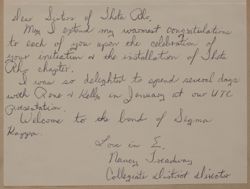 Dear Sisters of Theta Rho,
May I extend my warmest congratulations
to each of you upon the celebration of
your initiation & the installation of Theta
Rho chapter.
I was so delighted to spend several days
with Rose & Kelly in January at our UTC
presentation.
Welcome to the bond of Sigma
Kappa.
Love in Σ,
Nancy Treadway
Collegiate District Director